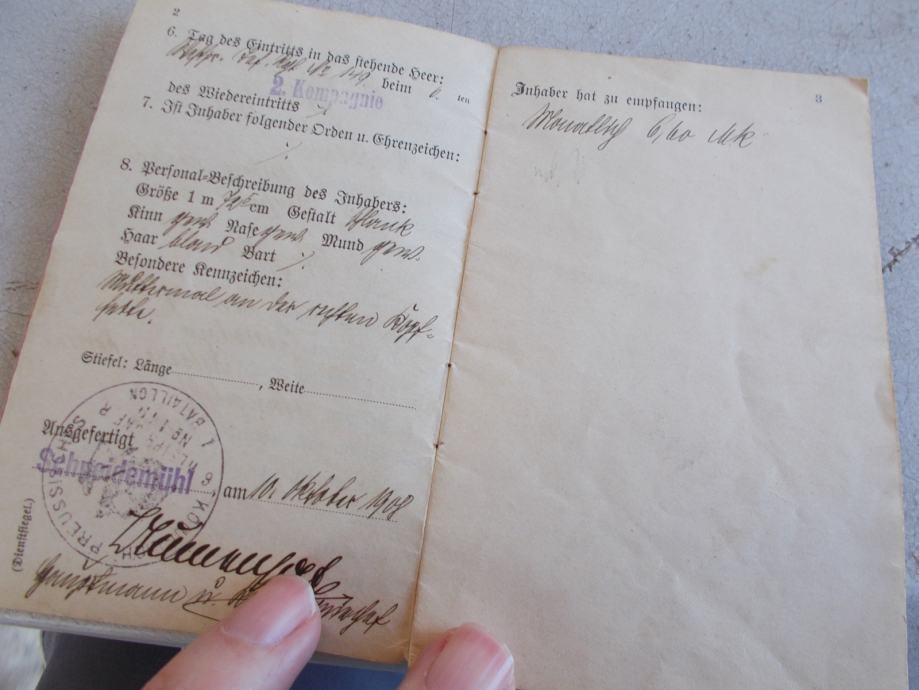 2
6. Tag des Eintritts in das stehende Heer:
Inf. Rgt. No 149. beim 6. ten
2. Kompagnie
des Wiedereintritts
7. Ist Inhaber folgender Orden u. Ehrenzeichen:
8. Personal-Beschreibung des Inhabers:
Größe 1 m cm Gestalt schlank
Kinn gew. Nase gew. Mund gew.
Haar blond Bart
Besondere Kennzeichen:
Muttermal an der rechten Kopf-
seite.
Stiefel: Länge , Weite
Ausgefertigt
Schneidemühl, am 10. Oktober 1908
Hauptmann u.
(Dienstsiegel.)
I BATAILLON
3
Inhaber hat zu empfangen:
Monatlich 6,60 Mk